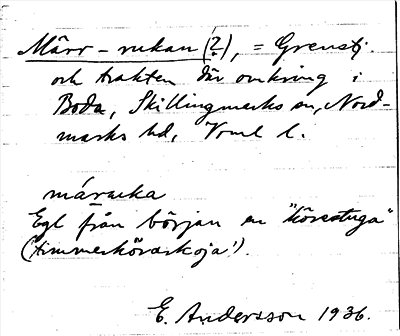 Märr-rukan (?), = Grenstj.
och trakten där omkring i
Boda, Skillingmarks sn, Nord-
marks hd, Vrml l.
márucka
Egl från början en "körestuga"
(timmerkörarkoja!).
E. Andersson 1936.